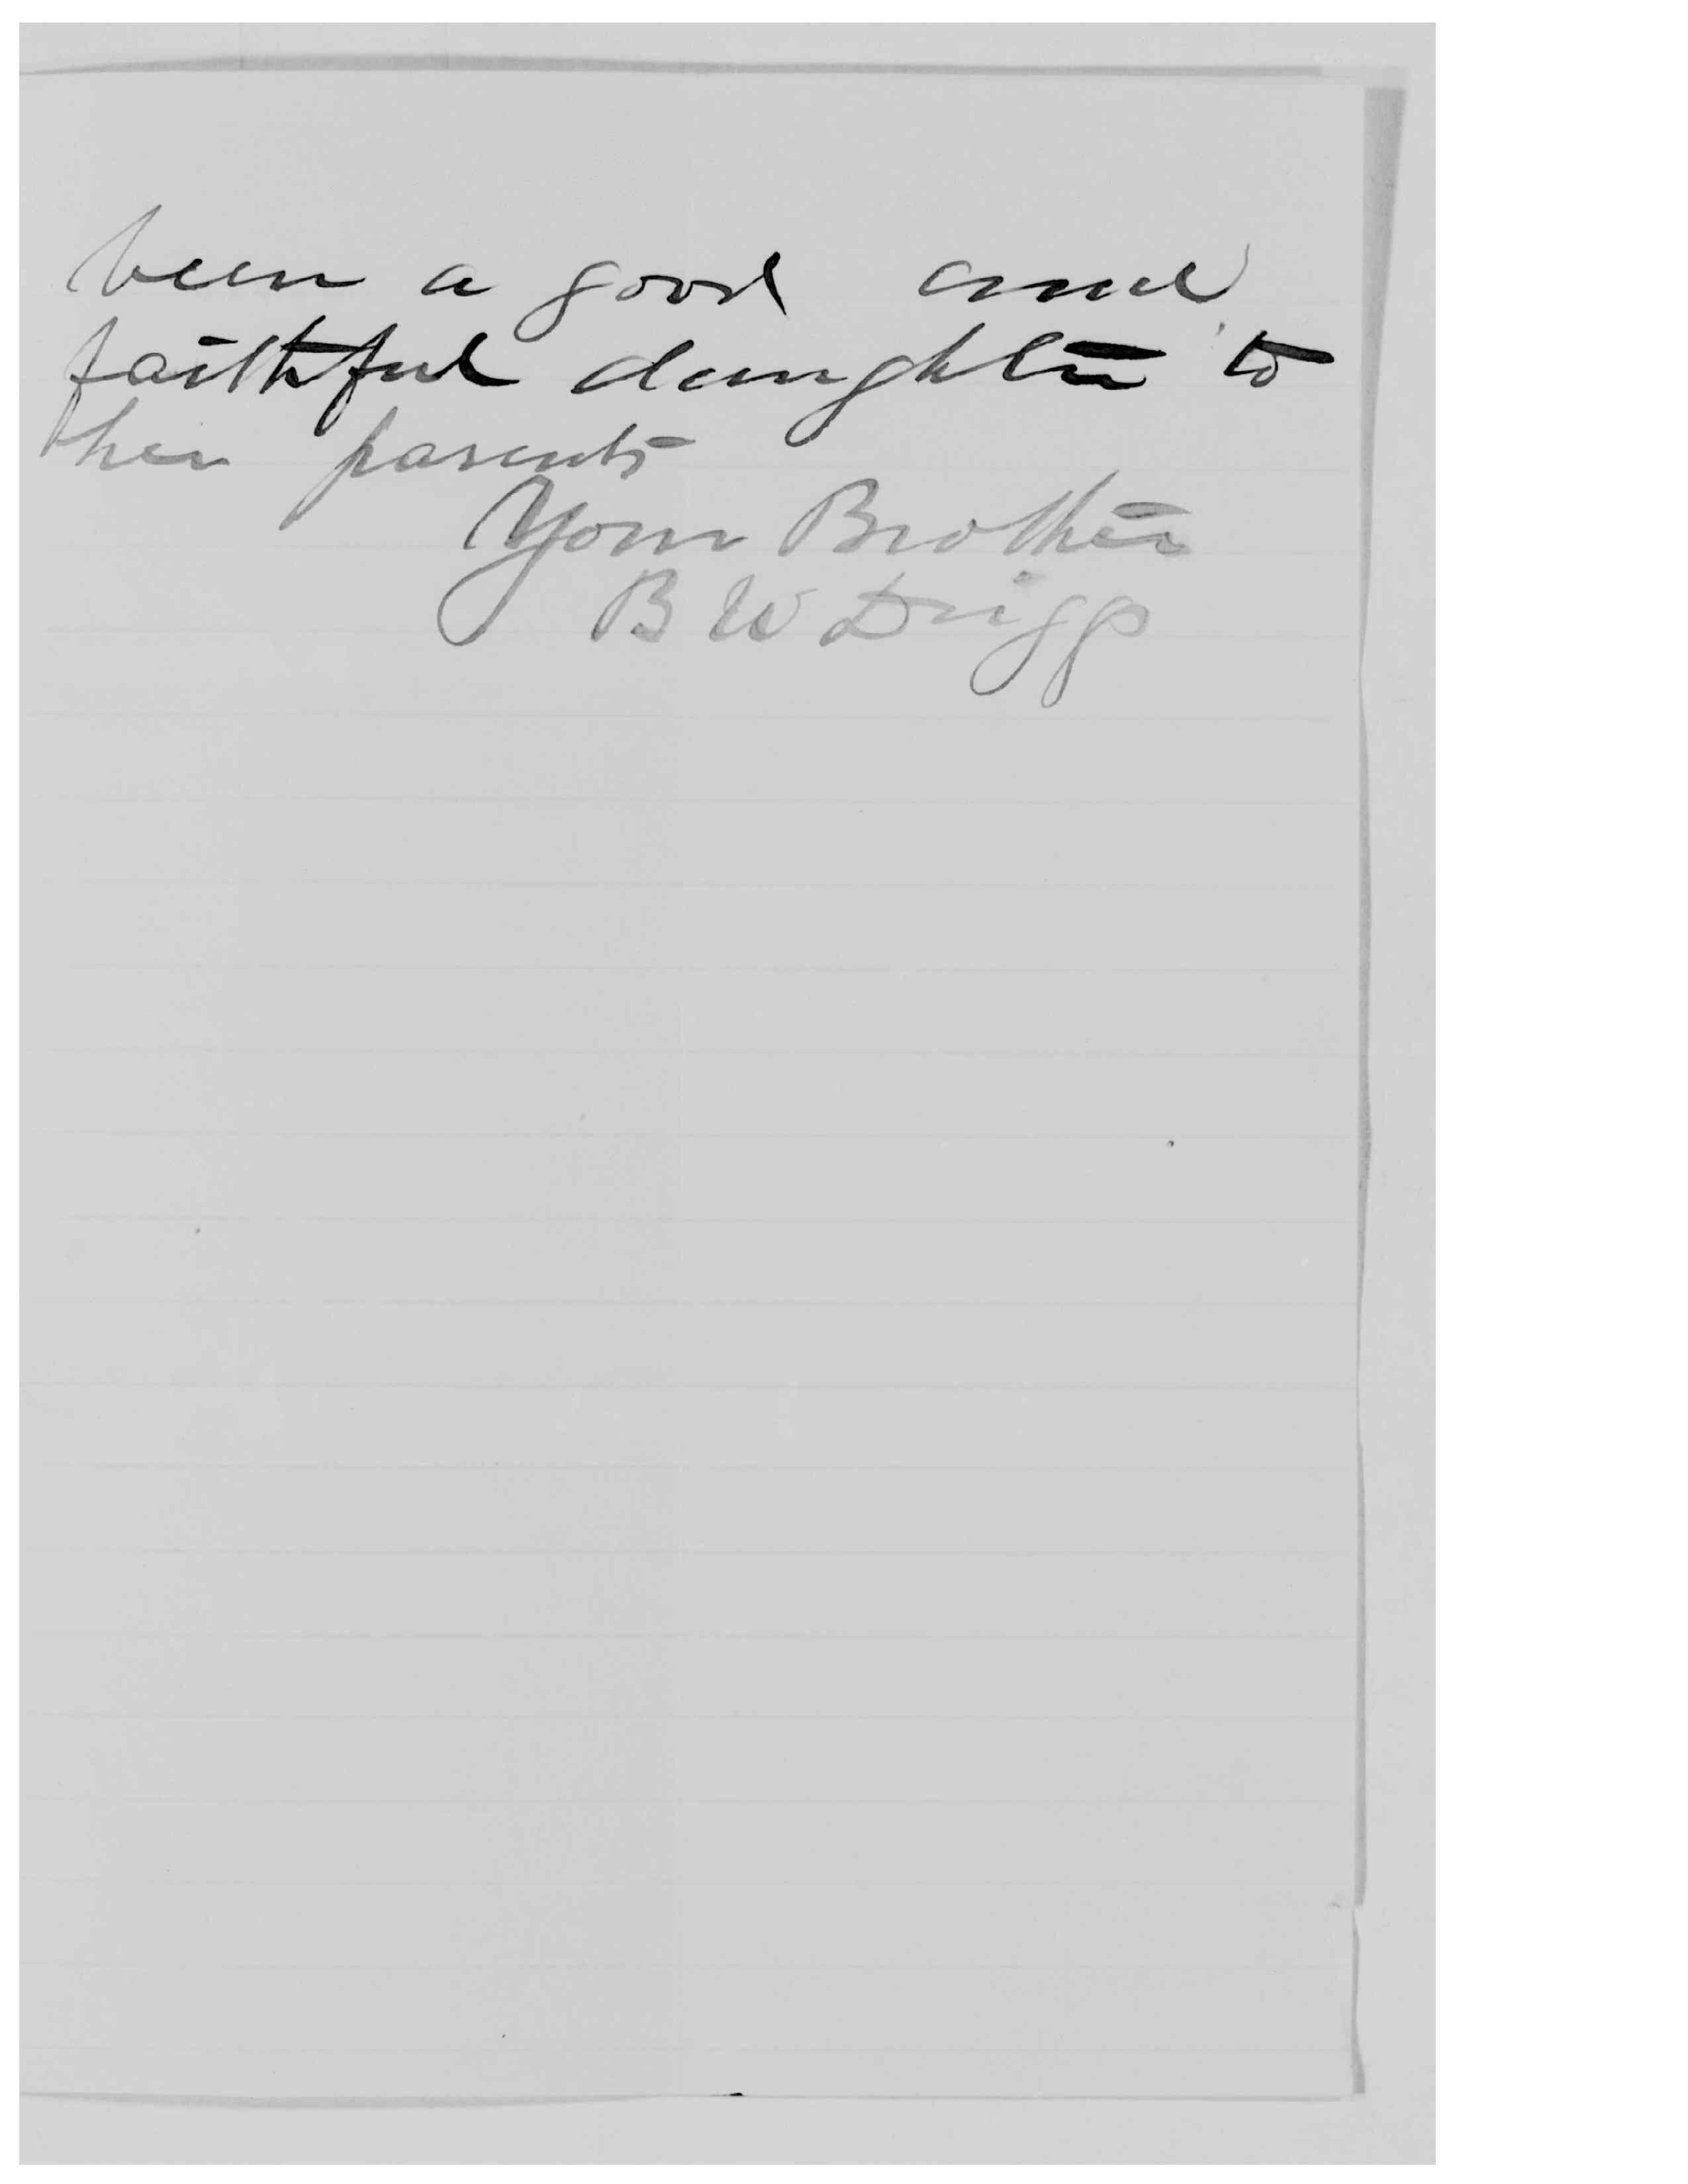 been a good and
faithful daughter to
her parents
Your Brother
B W Driggs